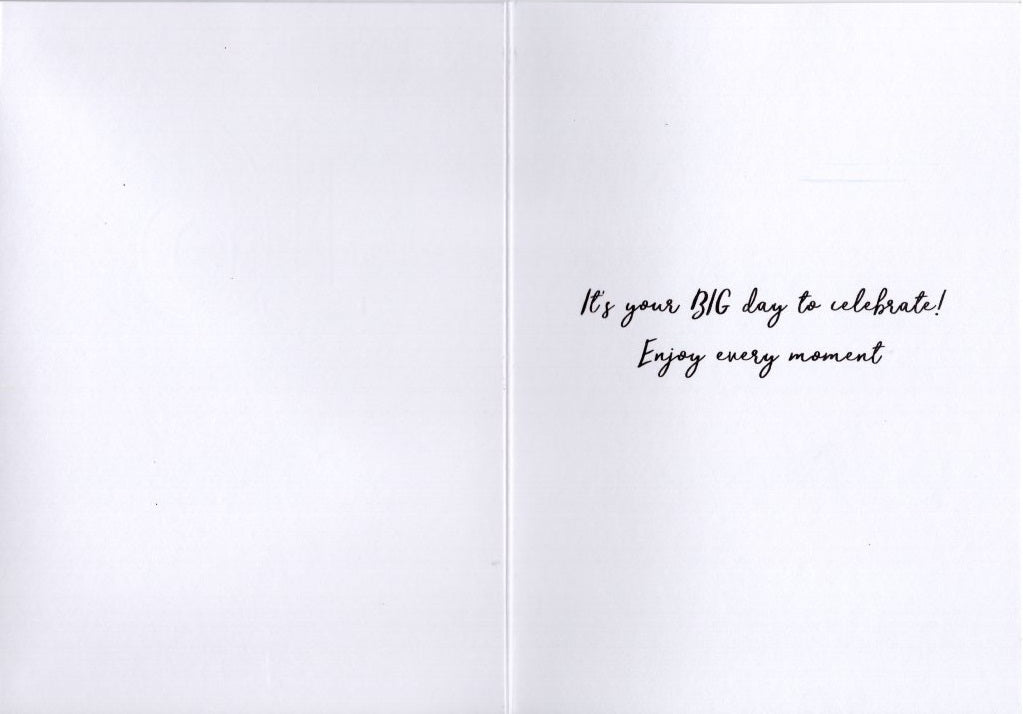 It's your BIG day to celebrate!
Enjoy every moment